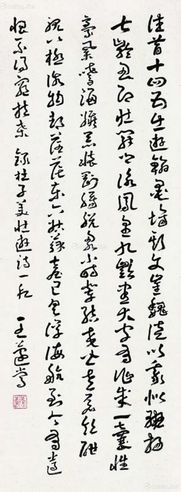 往昔十四五出遊翰墨場斯文崔魏徒以我似班揚
七齡思即壯開口詠鳳皇九齡書大字有作成一囊性
豪嗜酒嫉惡懷剛腸脫略小時輩結交皆老蒼飲酣
視八極俗物都茫茫東下姑蘇臺已具浮海航到今有遺
恨不得窮扶桑 錄杜子美壯遊詩一 王蘧常